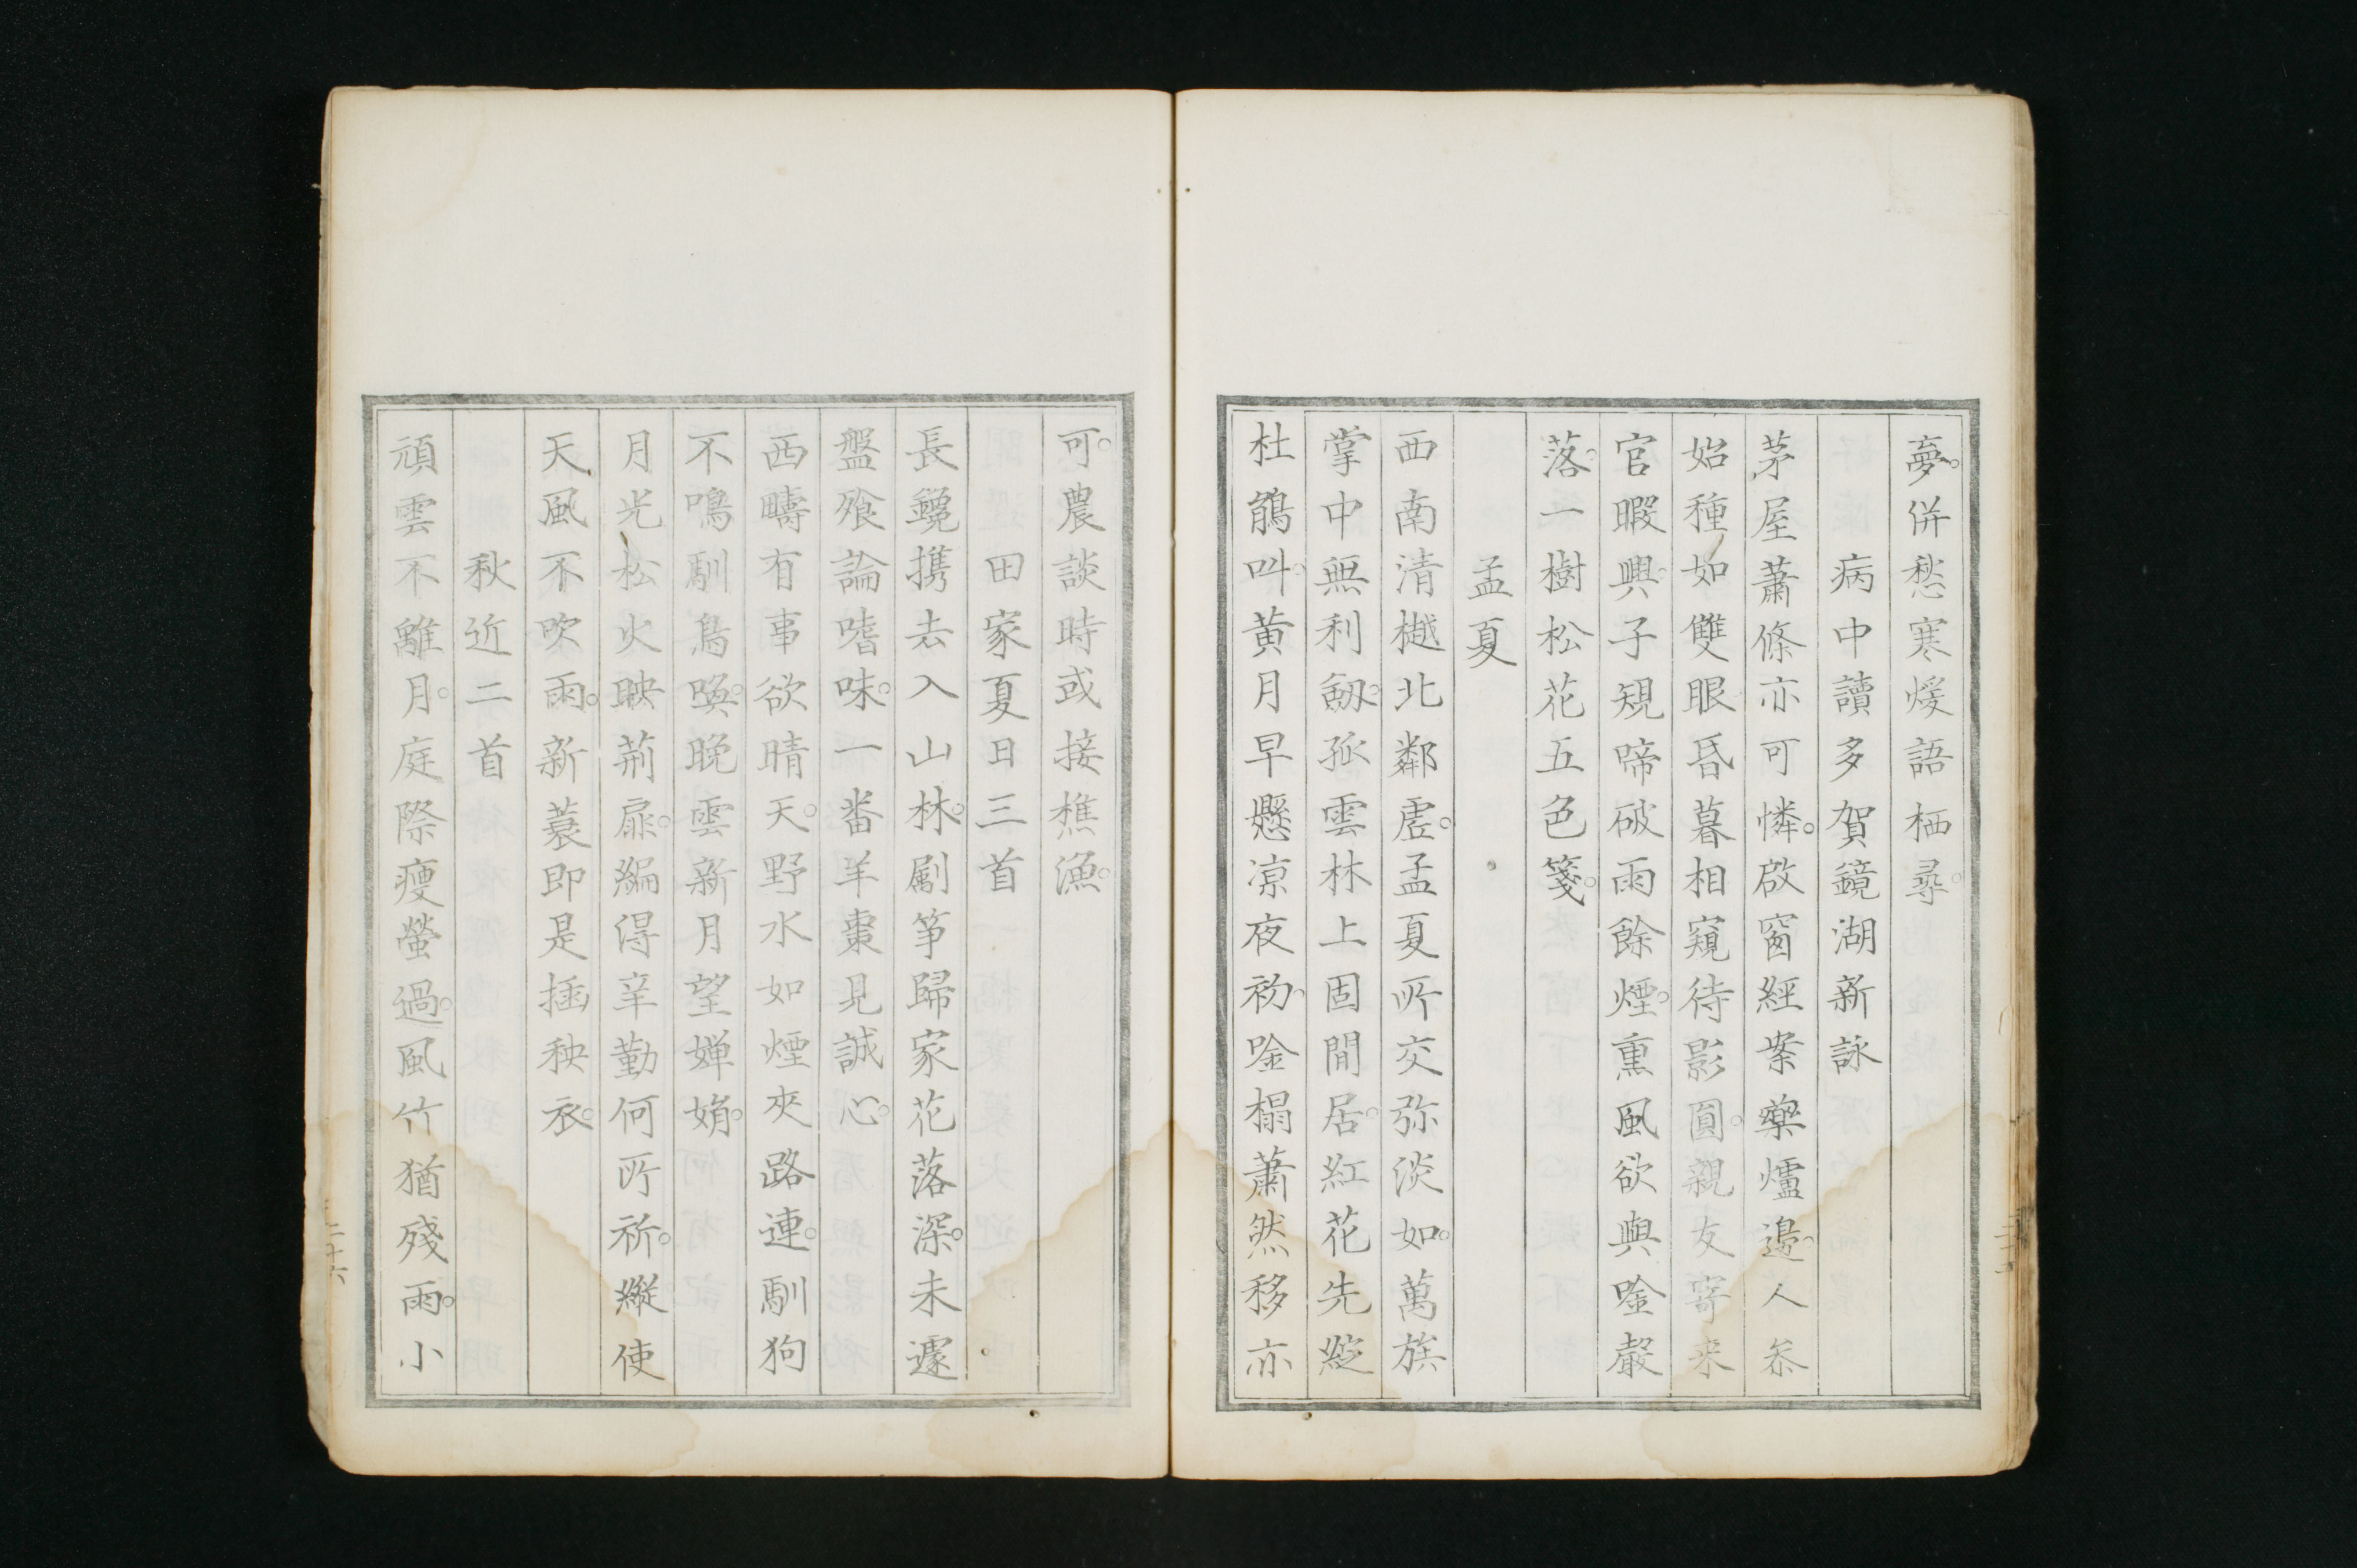 夢併愁寒煖語栖尋
病中讀多賀鏡湖新詠
茅屋蕭條亦可憐啟窗經案藥爐邊人叅
始種如雙眼昏暮相窺待影圓親友寄来
官暇興子規啼破雨餘煙熏風欲與唫聲
落一樹松花五色箋
孟夏
西南清樾北鄰虗孟夏所交弥淡如萬族
掌中無利劔孤雲林上固閒居紅花先綻
杜鵑叫黄月早懸凉夜初唫榻蕭然移亦
可農談時或接樵漁
田家夏日三首
長鑱携去入山林劚筝歸家花落深未遽
盤飱論嗜味一畨羊棗見誠心
西疇有事欲晴天野水如煙夾路連馴狗
不鳴馴鳥喚晚雲新月望嬋娟
月光松火映荊扉編得辛勤何所祈縱使
天風不吹雨新蓑即是插秧衣
秋近二首
頑雲不離月庭際瘦螢過風竹猶殘雨小
二十六